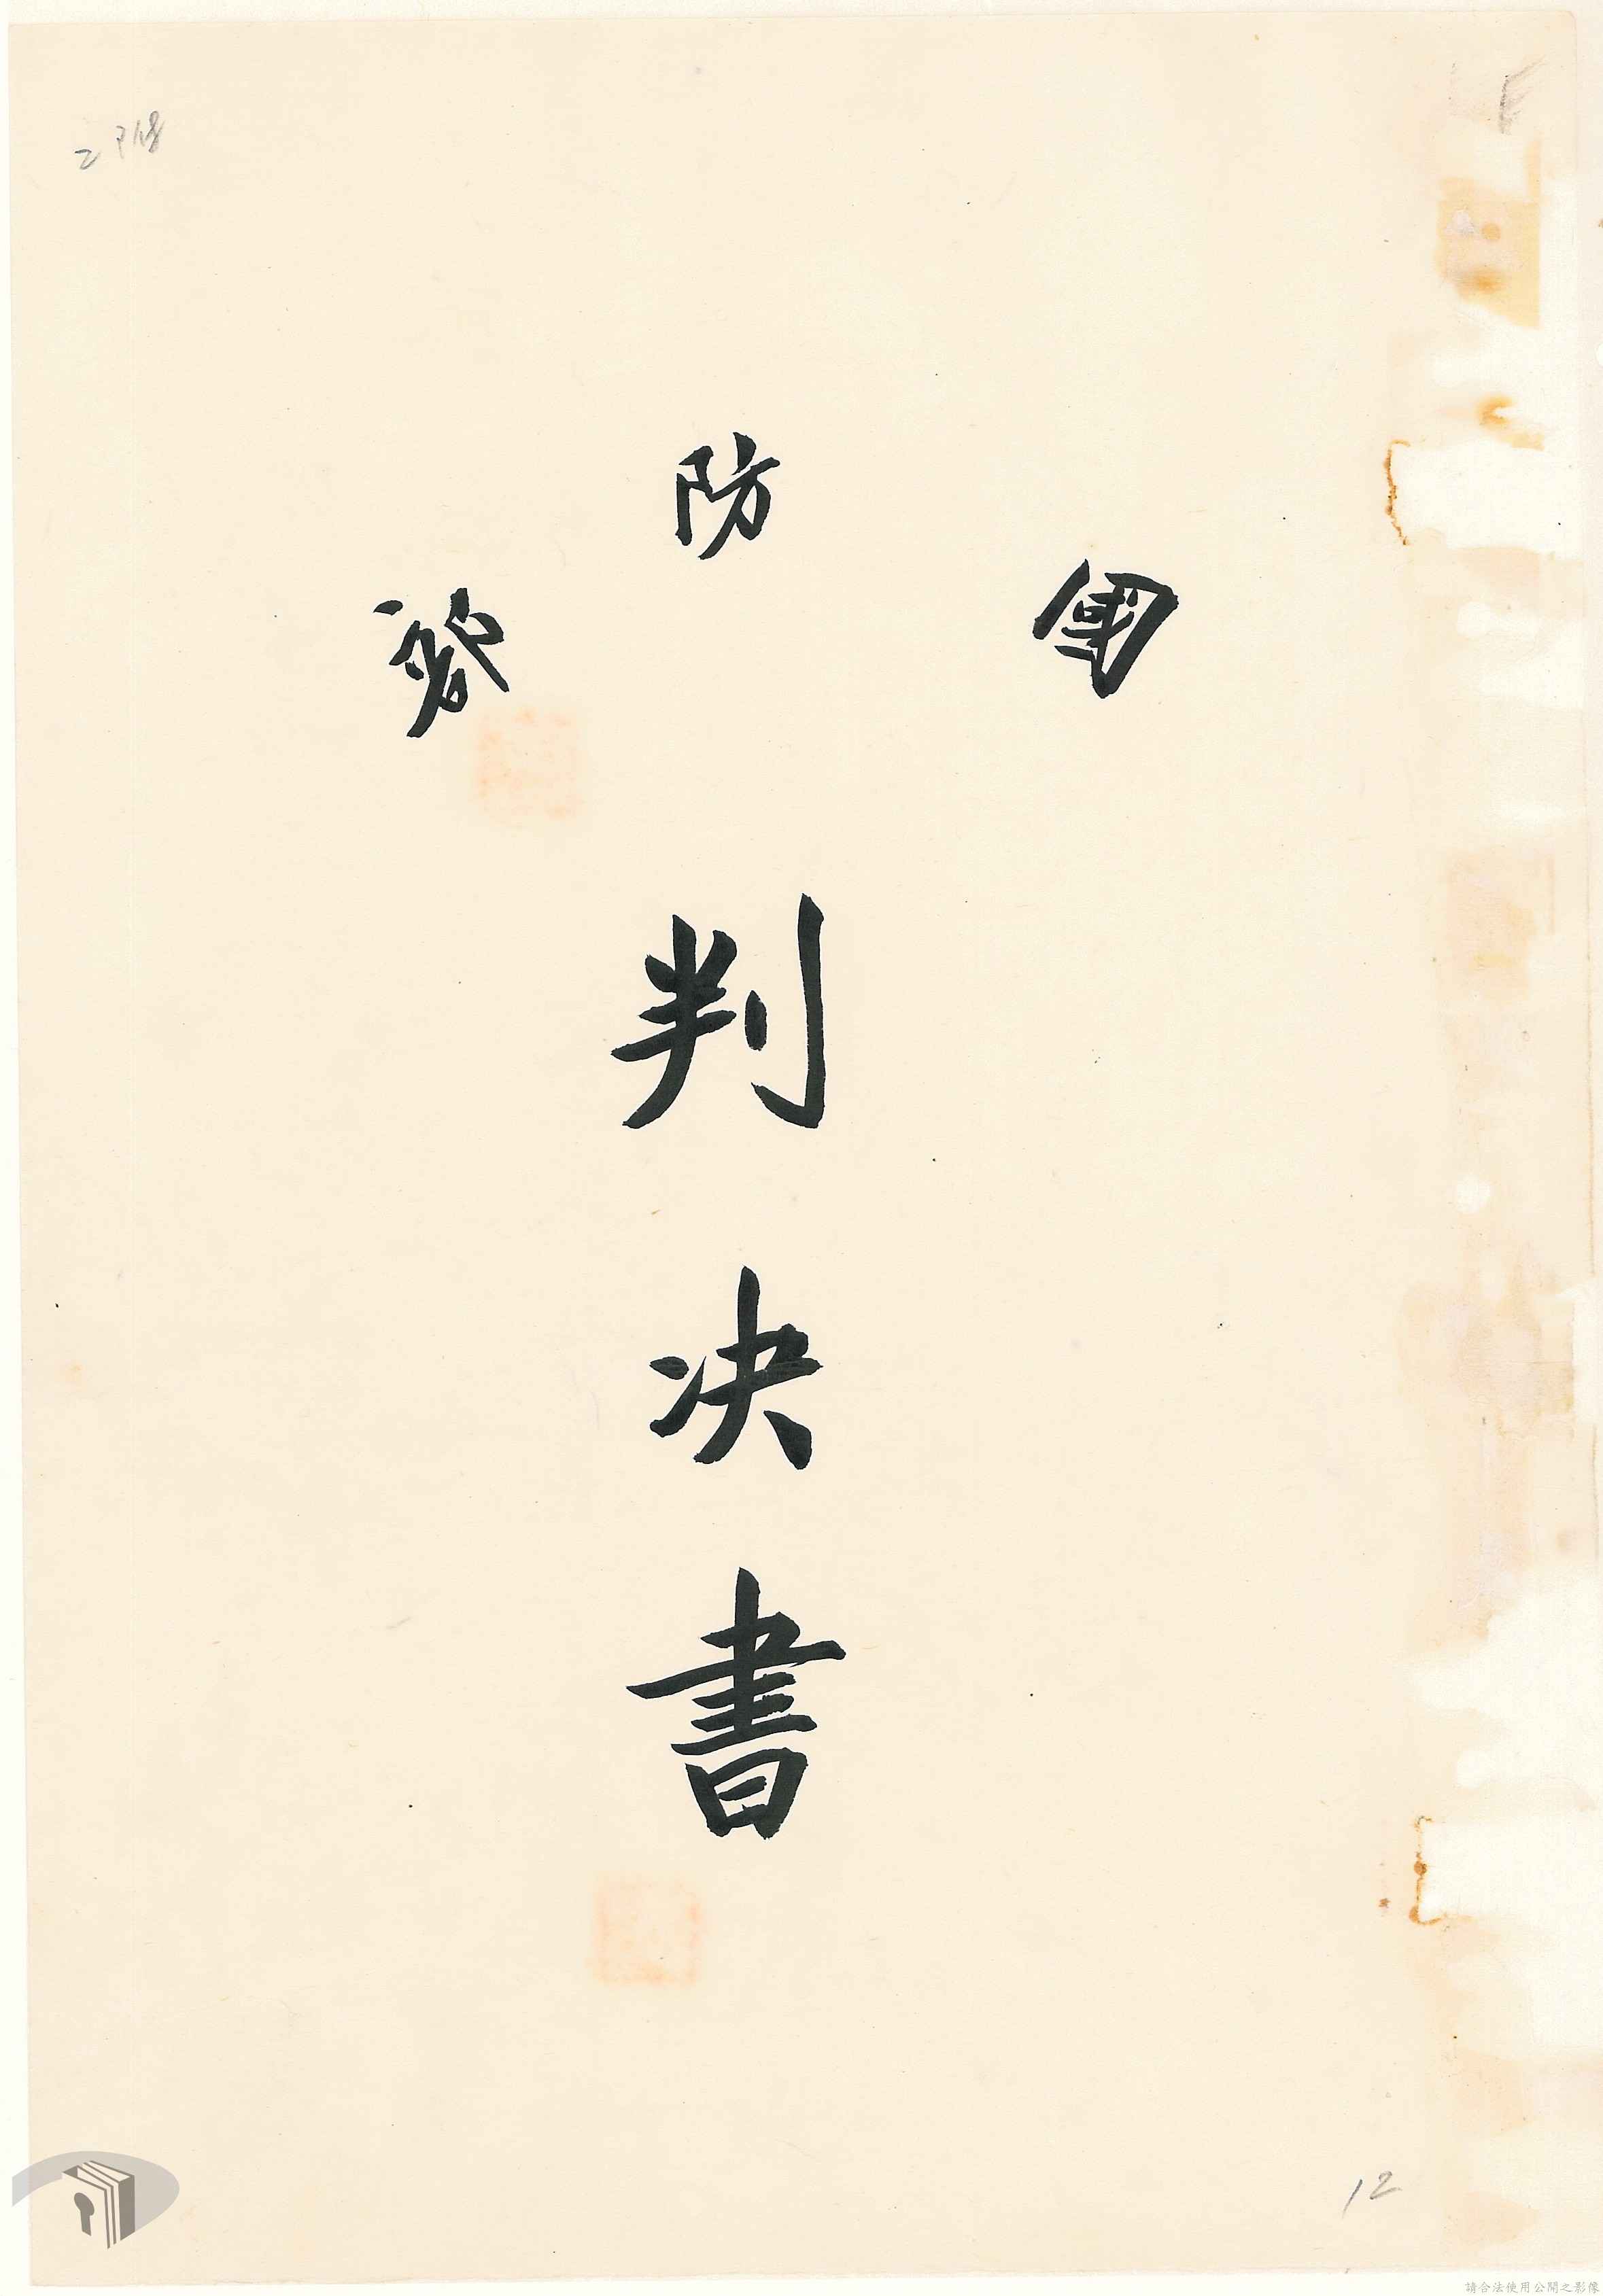 國防部
判决書
12
請合法使用公開之影像